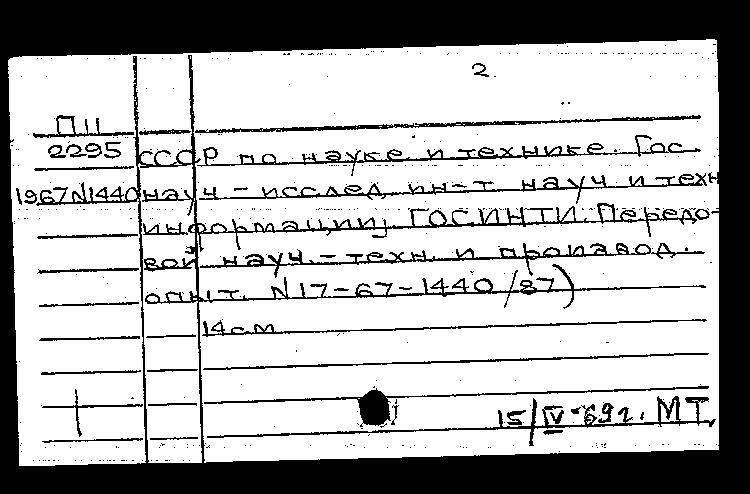 2
П11
2295 СССР по науке и технике. Гос.
1967N1440 науч-исслед. ин-т науч и техн
информации, ГОСИНТИ. Передо-
вой науч.-техн. и производ.
опыт. N17-67-1440/87)
14см
15/IV-69г. МТ.